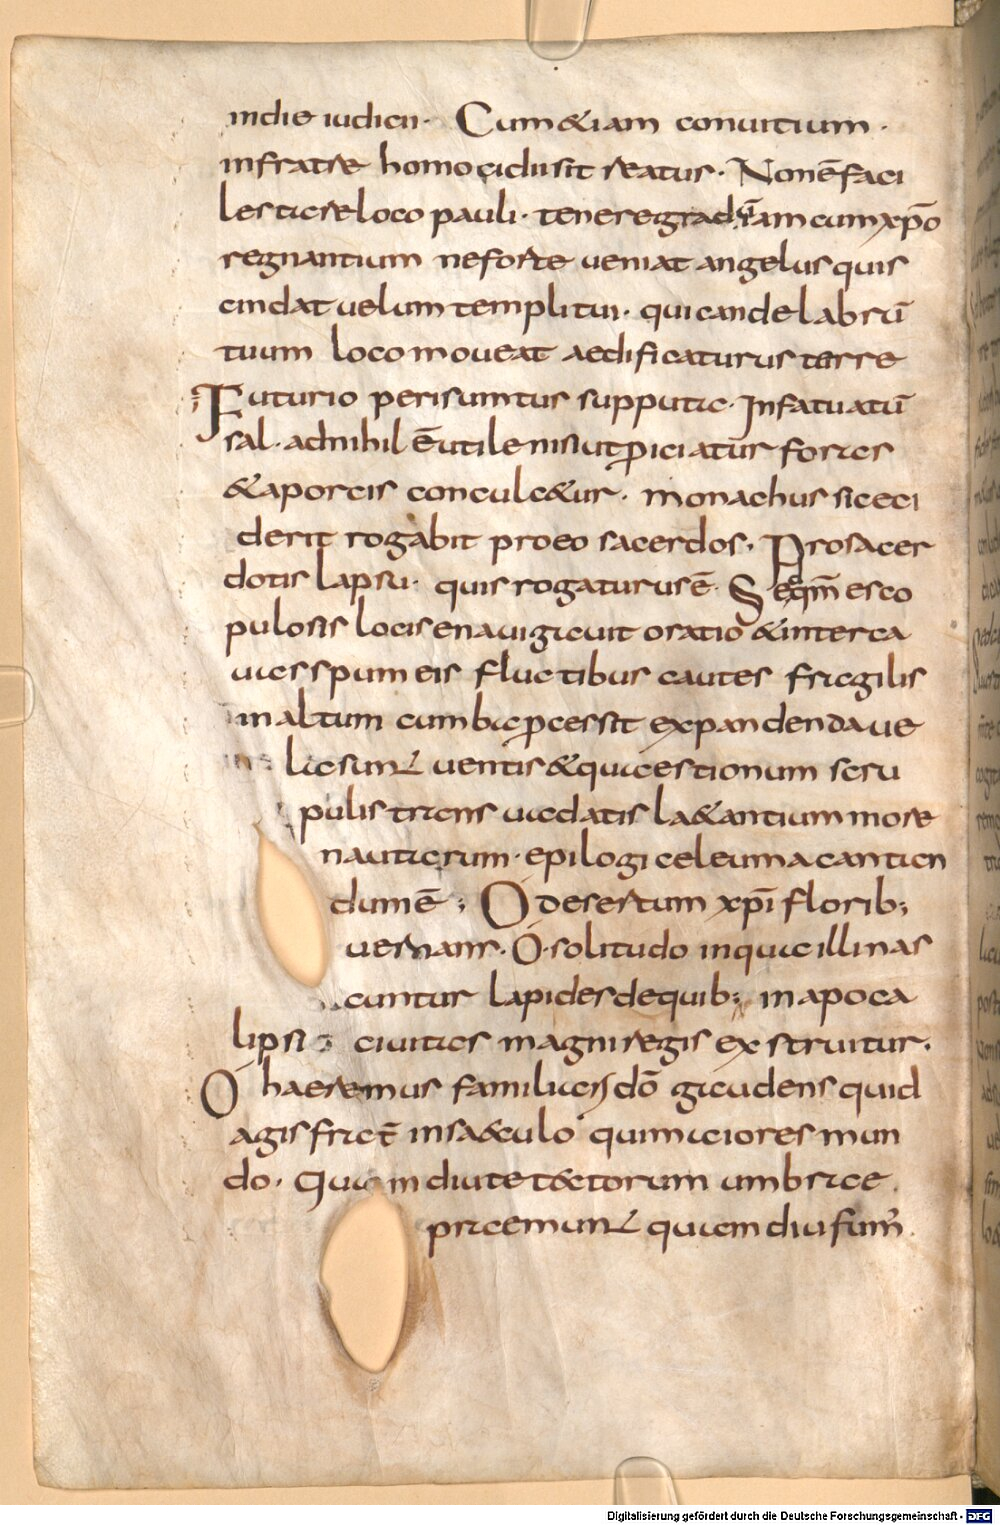 indie iudicii. Cum & iam conuitium.
infratre homocidii sit reatus. Non ē faci
le sta re loco pauli. tenere gradū iam cum xp̄o
regnantium ne forte ueniat angelus qui s
cindat uelum templi tui. qui candelabrū
tuum loco moueat aedificaturus terre
Futurio peri sumtus supputa. Infatuatū
sal. ad nihil ē utile nisi ut piciatur foras
& aporcis conculc&ur. monachus si ceci
derit rogabit pro eo sacerdos. Pro sacer
dotis lapsu. quis rogaturus ē. S; eqm̄ esco
pulosis locis enauigauit oratio & inter ca
uas spumeis fluctibus cautes fragilis
in altum cumba pcessit expandenda ue
la sunt uentis & quaestionum scru
pulis trans uadatis la&antium more
nautarum. epilogi celeuma cantan
dum ē; O desertum xp̄i florib;
uernans. O. solitudo in qua illi nas
cuntur lapides de quib; in apoca
lipsi ciuitas magni regis exstruitur.
O haeremus familiarius dō gaudens quid
agis frat̄ in sa&culo qui maior es mun
do. Quam diu te t&ctorum umbrae
praemunt quam diu fum̄
Digitalisierung gefördert durch die Deutsche Forschungsgemeinschaft - DFG